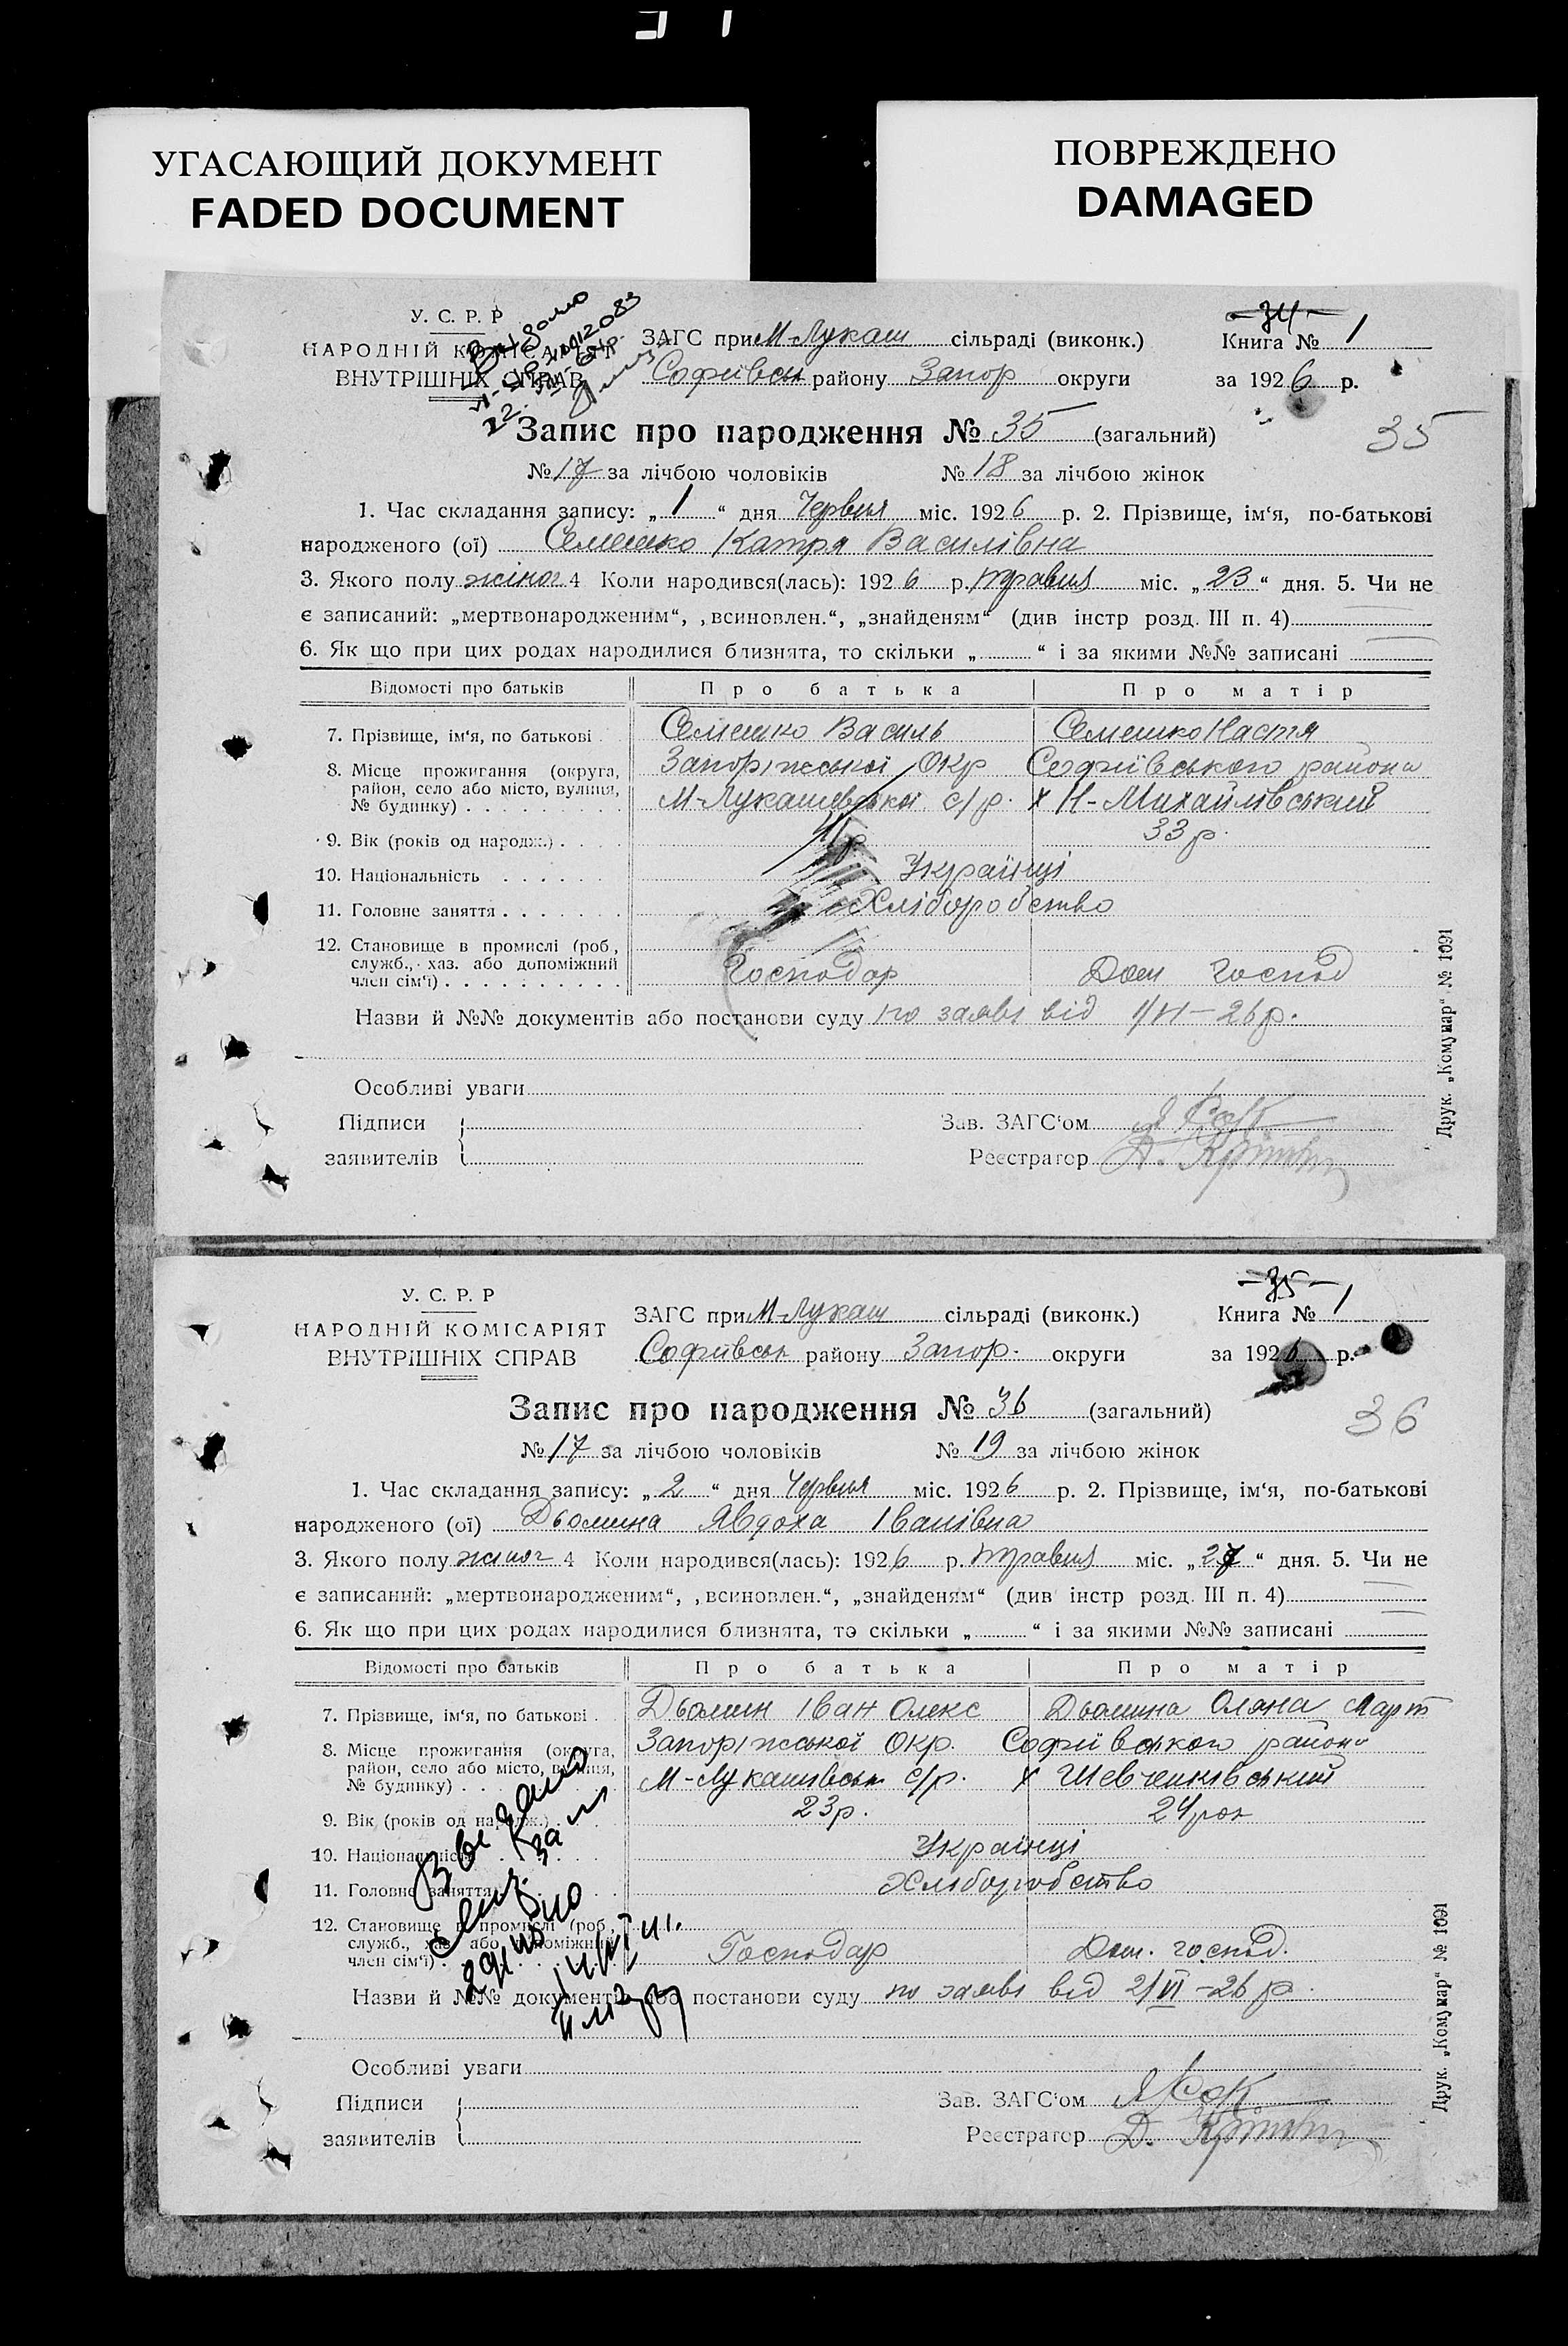 УГАСАЮЩИЙ ДОКУМЕНТ
FADED DOCUMENT
ПОВРЕЖДЕНО
DAMAGED
У. С. Р. Р
НАРОДНІЙ КОМІСАРІЯТ
ВНУТРІШНІХ СПРАВ
ЗАГС при М-Лукаш сільраді (виконк.)
Софиівськ району Запор округи
-34-
Книга № 1
за 1926 р.
Запис про народження № 35 (загальний)
35
№ 17 за лічбою чоловіків № 18 за лічбою жінок
1. Час складання запису: „ 1 “ дня Червня міс. 1926 р. 2. Прізвище, ім‘я, по-батькові
народженого (ої) Семешко Катря Василівна
3. Якого полу жіноч 4 Коли народився(лась): 1926 р. травня міс. „ 23 “ дня. 5. Чи не
є записаний: „мертвонародженим“, ‚всиновлен.“, „знайденям“ (див інстр розд. III п. 4)
6. Як що при цих родах народилися близнята, то скільки „ “ і за якими №№ записані
Відомості про батьків Про батька Про матір
7. Прізвище, ім‘я, по батькові Семешко Василь Семешко Настя
8. Місце прожигання (округа, Запоріжської Окр Софиівського района
район, село або місто, вулиця, М-Лукашевської с/р. х Н-Михайлівський
№ будинку)
9. Вік (років од народж.) 33 р.
10. Національність Українці
11. Головне заняття Хліборобство
12. Становище в промислі (роб,
служб., хаз. або допоміжний Господар Дом господ
член сім‘ї)
Назви й №№ документів або постанови суду по заяві від 1/VI-26р.
Особливі уваги
Підписи Зав. ЗАГС‘ом
заявителів Реєстратор
Друк. „Комунар“ № 1091
У. С. Р. Р
НАРОДНІЙ КОМІСАРІЯТ
ВНУТРІШНІХ СПРАВ
ЗАГС при М-Лукаш сільраді (виконк.)
Софиівськ району Запор. округи
-35-
Книга № 1
за 1926 р.
Запис про народження № 36 (загальний)
36
№ 17 за лічбою чоловіків № 19 за лічбою жінок
1. Час складання запису: „ 2 “ дня Червня міс. 1926 р. 2. Прізвище, ім‘я, по-батькові
народженого (ої) Дьомина Явдоха Іванівна
3. Якого полу жіноч 4 Коли народився(лась): 1926 р. травня міс. „ 27 “ дня. 5. Чи не
є записаний: „мертвонародженим“, ‚всиновлен.“, „знайденям“ (див інстр розд. III п. 4)
6. Як що при цих родах народилися близнята, то скільки „ “ і за якими №№ записані
Відомості про батьків Про батька Про матір
7. Прізвище, ім‘я, по батькові Дьомин Іван Олекс Дьомина Оляна Март
8. Місце прожигання (округа, Запоріжської Окр. Софиівського района
район, село або місто, вулиця, М-Лукашівськ с/р. х Шевченківський
№ будинку)
9. Вік (років од народж.) 23р. 24 рок
10. Національність Українці
11. Головне заняття Хліборобство
12. Становище в промислі (роб,
служб., хаз або допоміжний Господар Дом. господ.
член сім‘ї)
Назви й №№ документів або постанови суду по заяві від 2/VI-26 р.
Особливі уваги
Підписи Зав. ЗАГС‘ом
заявителів Реєстратор
Друк. „Комунар“ № 1091